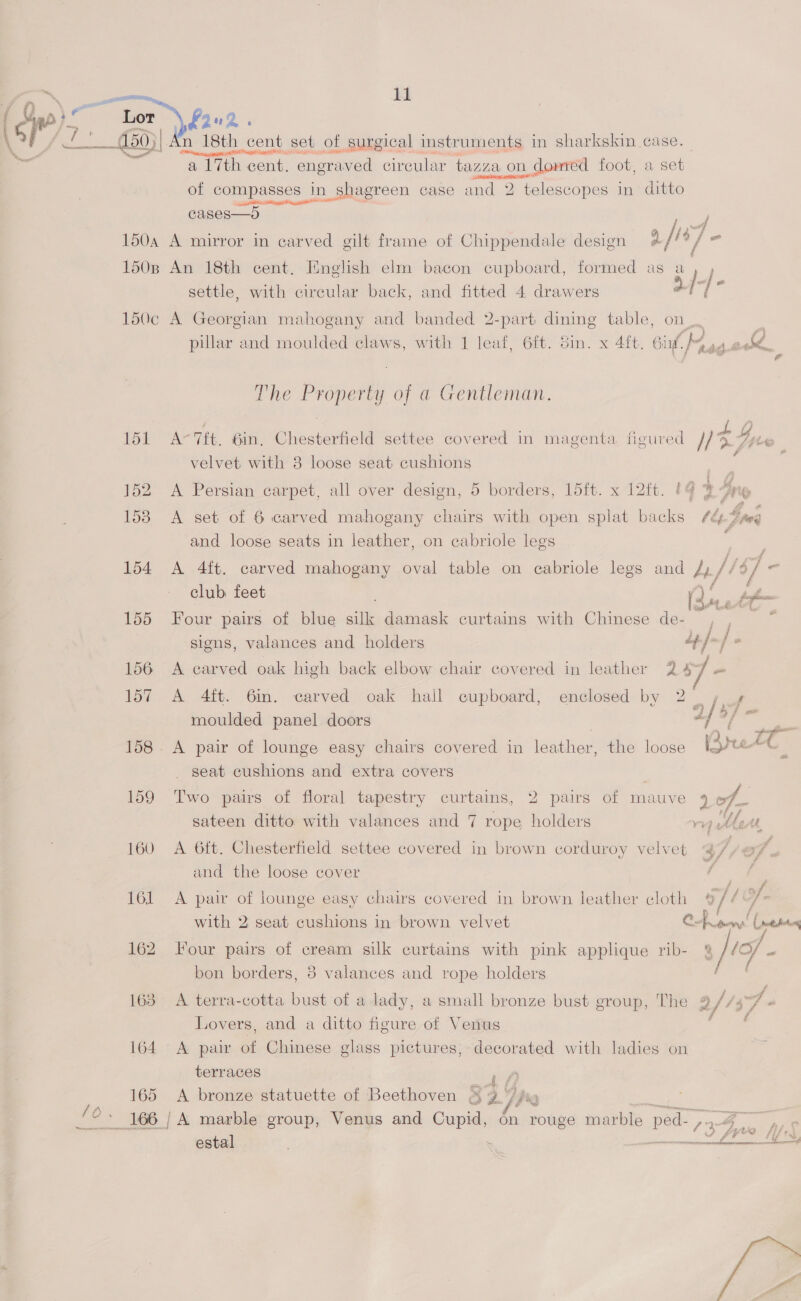 11
Lot
150) An 18th cent set of surgical instruments in sharkskin case.
a 17th cent. engraved circular tazza on domed foot, a set
of compasses in shagreen case and 2 telescopes in ditto
cases—5
150A A mirror in carved gilt frame of Chippendale design
150B An 18th cent. English elm bacon cupboard, formed as a
settle, with circular back, and fitted 4 drawers
150C A Georgian mahogany and banded 2-part dining table, on
pillar and moulded claws, with 1 leaf, 6ft. 5in. x 4ft. 6in.
The Property of a Gentleman.
151 A 7ft. 6in. Chesterfield settee covered in magenta figured
velvet with 3 loose seat cushions
152 A Persian carpet, all over design, 5 borders, 15ft. x 12ft.
153 A set of 6 carved mahogany chairs with open splat backs
and loose seats in leather, on cabriole legs
154 A 4ft. carved mahogany oval table on cabriole legs and
club feet
155 Four pairs of blue silk damask curtains with Chinese de-
signs, valances and holders
156 A carved oak high back elbow chair covered in leather
157 A 4ft. 6in. carved oak hall cupboard, enclosed by 2
moulded panel doors
158 A pair of lounge easy chairs covered in leather, the loose
seat cushions and extra covers
159 Two pairs of floral tapestry curtains, 2 pairs of mauve
sateen ditto with valances and 7 rope holders
160 A 6ft. Chesterfield settee covered in brown corduroy velvet
and the loose cover
161 A pair of lounge easy chairs covered in brown leather cloth
with 2 seat cushions in brown velvet
162 Four pairs of cream silk curtains with pink applique rib-
bon borders, 3 valances and rope holders
163 A terra-cotta bust of a lady, a small bronze bust group, The
Lovers, and a ditto figure of Venus
164 A pair of Chinese glass pictures, decorated with ladies on
terraces
165 A bronze statuette of Beethoven
166 A marble group, Venus and Cupid, on rouge marble ped-
estal